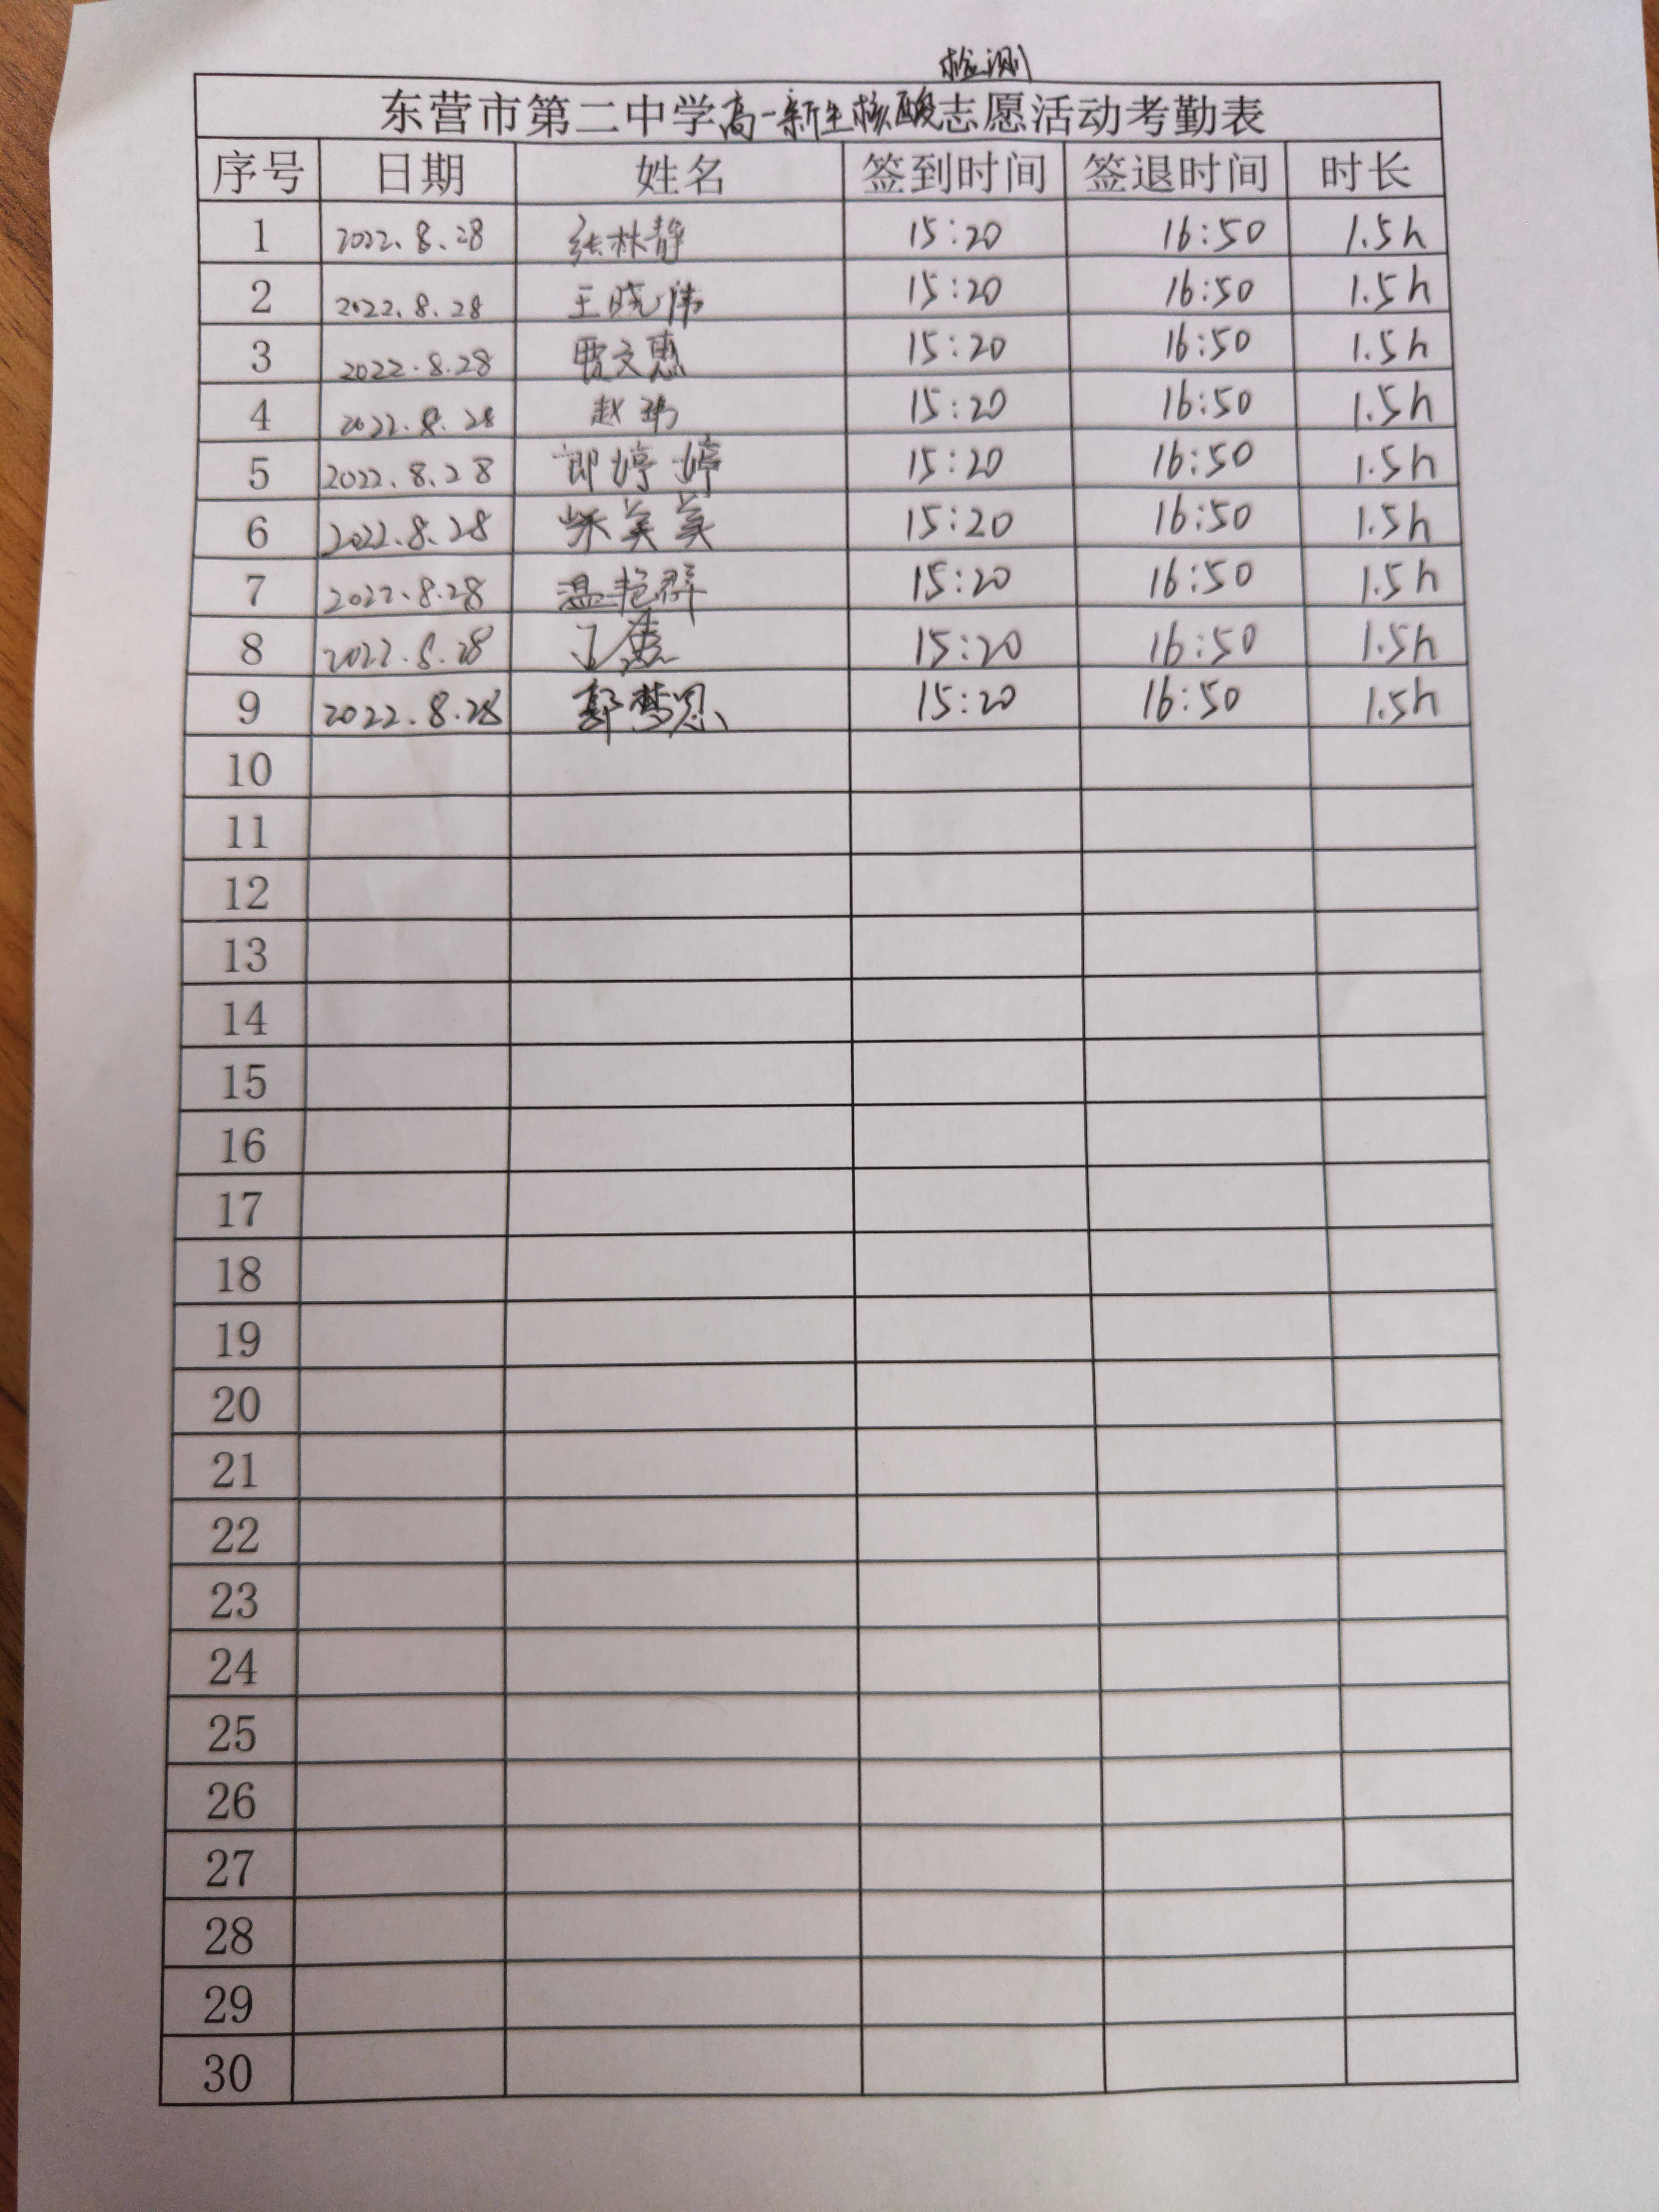 检测
东营市第二中学高一新生核酸志愿活动考勤表
序号 日期 姓名 签到时间 签退时间 时长
1 2022.8.28 张林静 15:20 16:50 1.5h
2 2022.8.28 王晓伟 15:20 16:50 1.5h
3 2022.8.28 贾文惠 15:20 16:50 1.5h
4 2022.8.28 赵 15:20 16:50 1.5h
5 2022.8.28 郎婷婷 15:20 16:50 1.5h
6 2022.8.28 美美 15:20 16:50 1.5h
7 2022.8.28 温艳群 15:20 16:50 1.5h
8 2022.8.28 15:20 16:50 1.5h
9 2022.8.28 郭梦恩 15:20 16:50 1.5h
10
11
12
13
14
15
16
17
18
19
20
21
22
23
24
25
26
27
28
29
30